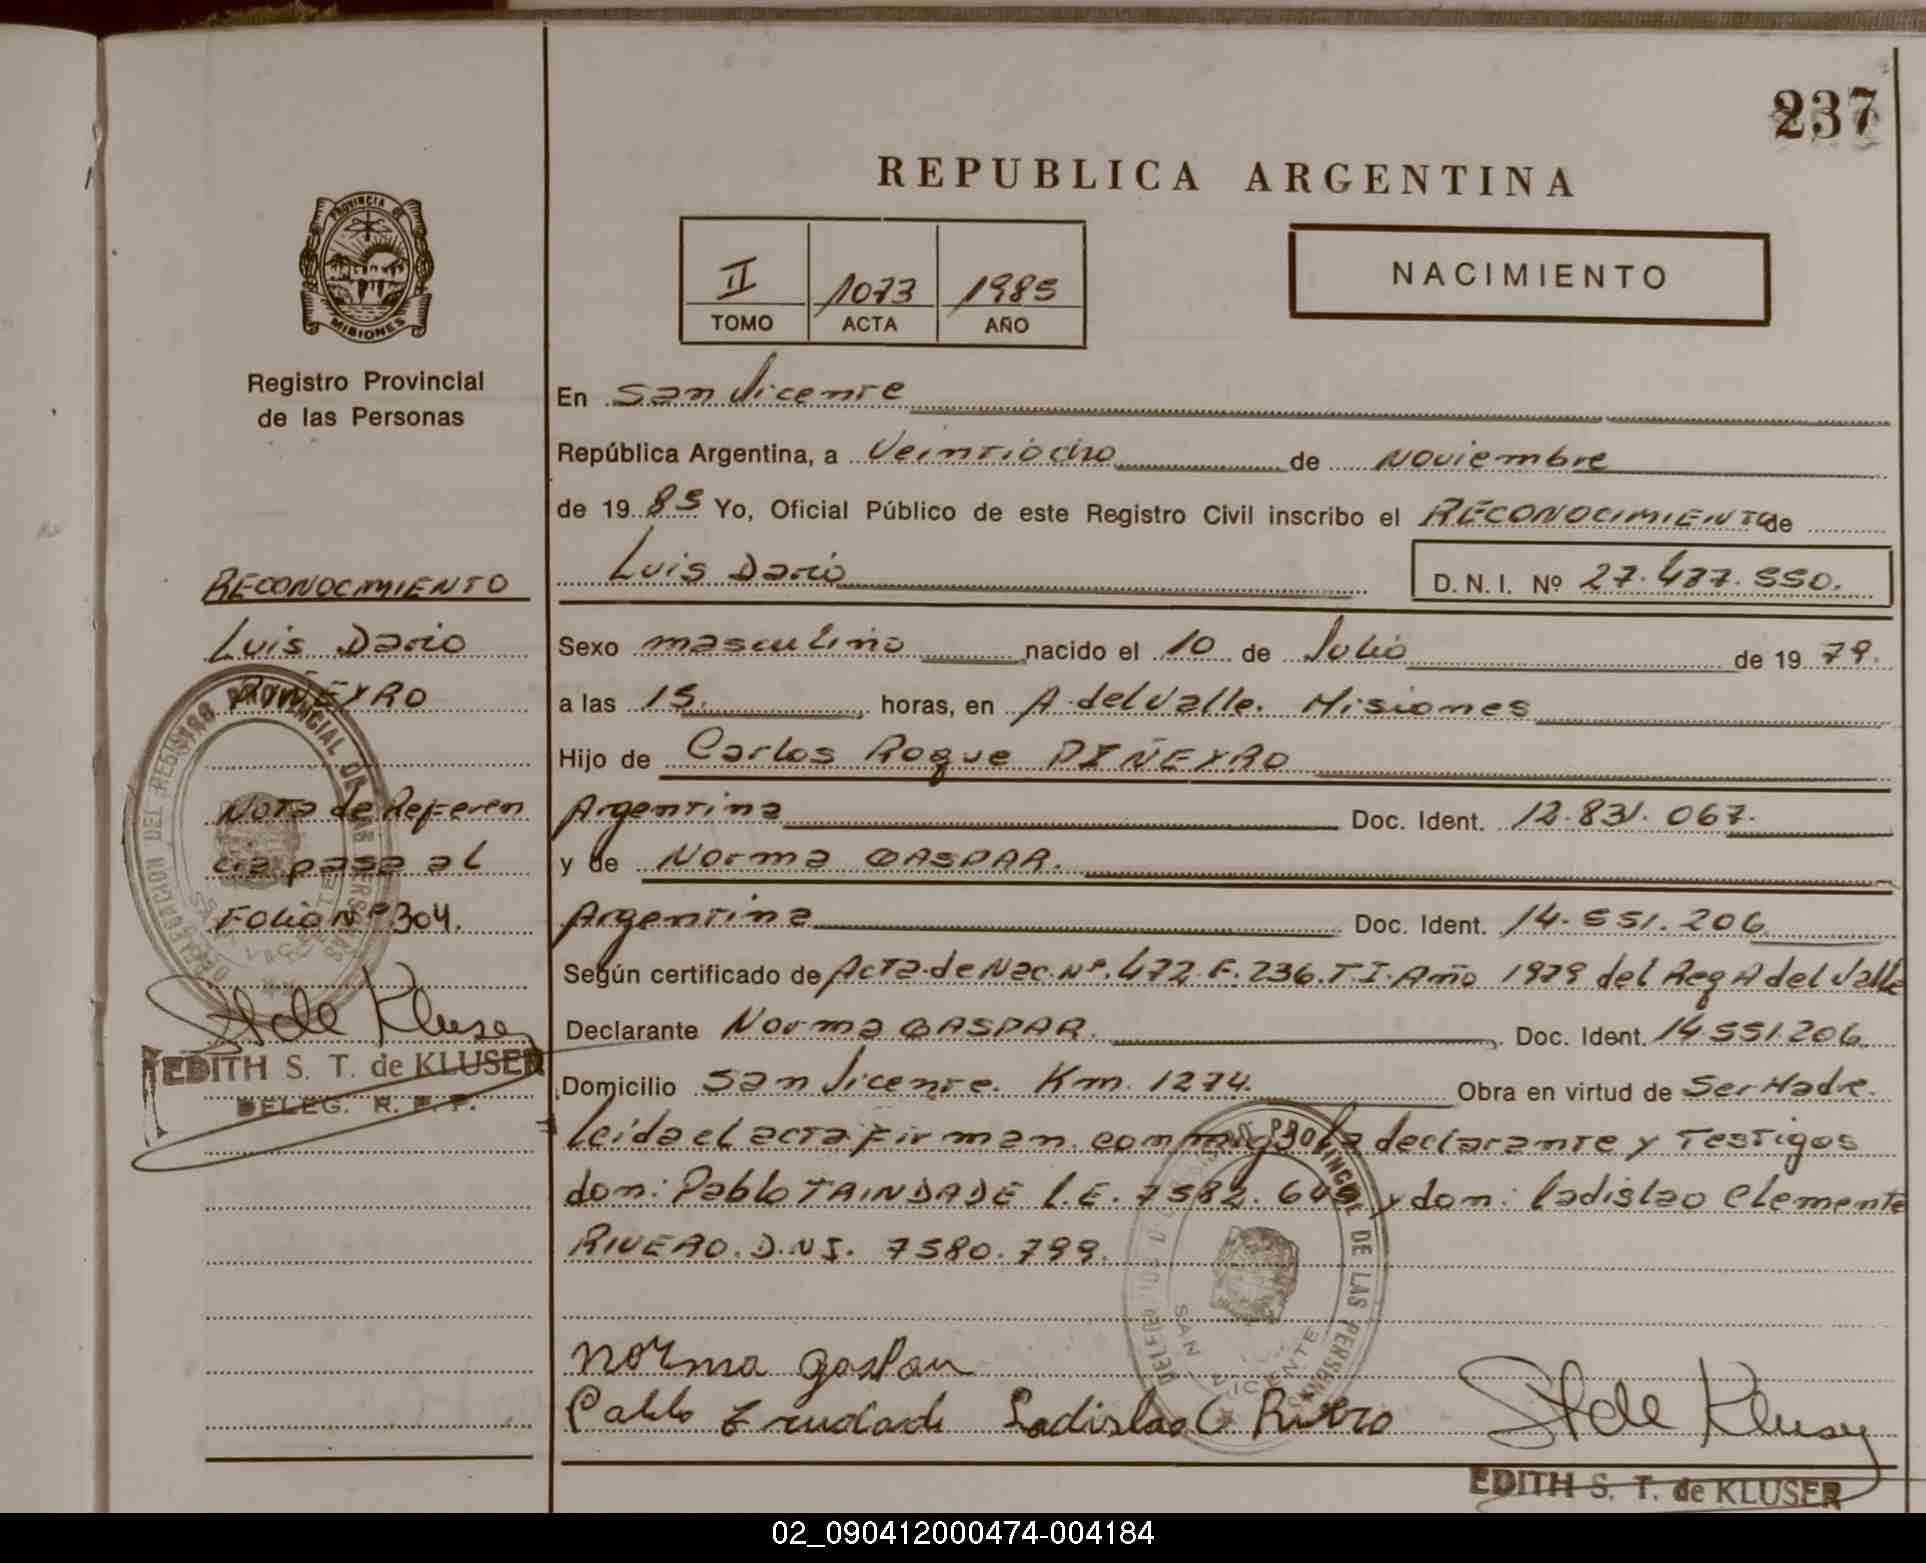 237
REPUBLICA ARGENTINA
II 1073 1985
TOMO ACTA AÑO
NACIMIENTO
PROVINCIA DE
MISIONES
Registro Provincial
de las Personas
En San Vicente
República Argentina, a Veintiocho de Noviembre
de 1985 Yo, Oficial Público de este Registro Civil inscribo el RECONOCIMIENTO de
Luis Dario D.N.I. Nº 27.477.550.
Sexo masculino nacido el 10 de Julio de 1979.
a las 15. horas, en A. del Valle. Misiones
Hijo de Carlos Roque PIÑEYRO
Argentina Doc. Ident. 12.831.067.
y de Norma GASPAR.
Argentina Doc. Ident. 14.551.206
Según certificado de Acta de Nac. Nº. 472 F. 236. T. I. Año 1979 del Reg A del Valle
Declarante Norma GASPAR. Doc. Ident. 14.551.206.
Domicilio San Vicente. Km. 1274. Obra en virtud de Ser Madre.
Leída el acta firman conmigo la declarante y Testigos
don: Pablo TRINDADE L.E. 7582. y don: Ladislao Clemente
RIVERO. D.N.I. 7580.799.
Norma Gaspar
Pablo Trindade Ladislao C Rivero St de Kluser
EDITH S. T. de KLUSER
RECONOCIMIENTO
Luis Dario
PIÑEYRO
Nota de Referen
cia pasa al
Folio Nº 304.
St de Kluser
EDITH S. T. de KLUSER
DELEG. R. P. P.
DELEGACION DEL REGISTRO PROVINCIAL DE LAS PERSONAS
SAN VICENTE
DELEGACION DEL REGISTRO PROVINCIAL DE LAS PERSONAS
SAN VICENTE
02_090412000474-004184